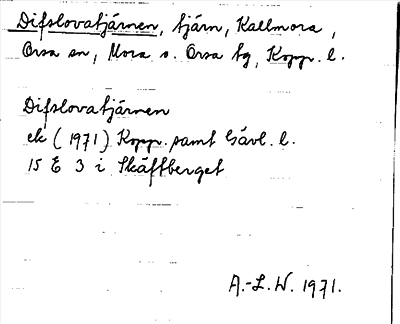 Difslovatjärnen, tjärn, Kallmora,
Orsa sn, Mora o. Orsa tg, Kopp. l.
Difslovatjärnen
ek (1971) Kopp. samt Gävl. l.
15 E 3 i Skäftberget
A.-L. W. 1971.